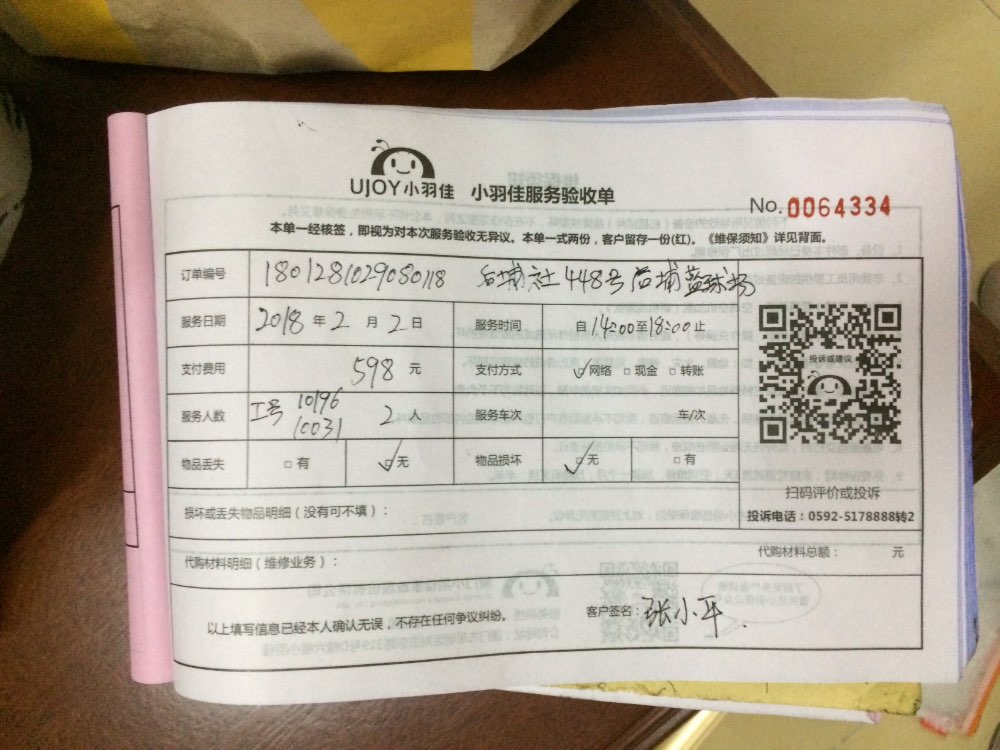 UJOY小羽佳 小羽佳服务验收单
No.0064334
本单一经核签，即视为对本次服务验收无异议。本单一式两份，客户留存一份(红)。《维保须知》详见背面。
订单编号 1801281029080118 后埔社448号后埔蓝球场
服务日期 2018年2月2日 服务时间 自14:00至18:00止
支付费用 598元 支付方式 ☑网络 □现金 □转账
投诉或建议
服务人数 工号 10196 10031 2人 服务车次 车/次
物品丢失 □有 ☑无 物品损坏 ☑无 □有
扫码评价或投诉
损坏或丢失物品明细（没有可不填）：
投诉电话：0592-5178888转2
代购材料明细（维修业务）： 代购材料总额： 元
以上填写信息已经本人确认无误，不存在任何争议纠纷。 客户签名：张小平